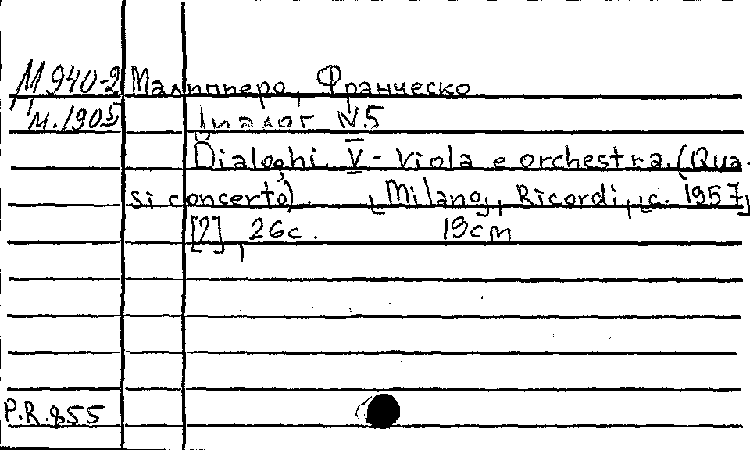 М940-2 Малипперо, Франческо
М.1905 Диалог N5
Dialoghi V - viola e orchestra. (Qua-
si concerto) [Milano], Ricordi, [c. 1957]
[2], 26c. 19cm
P.R.855